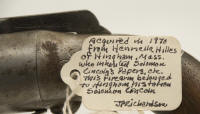 Acquired in 1970
from Henrietta Hilles
of Hingham, Mass.
who inherited Solomon
Lincoln's Papers, etc.
This firearm belonged
to Hingham Historian
Solomon Lincoln
JPRichardson